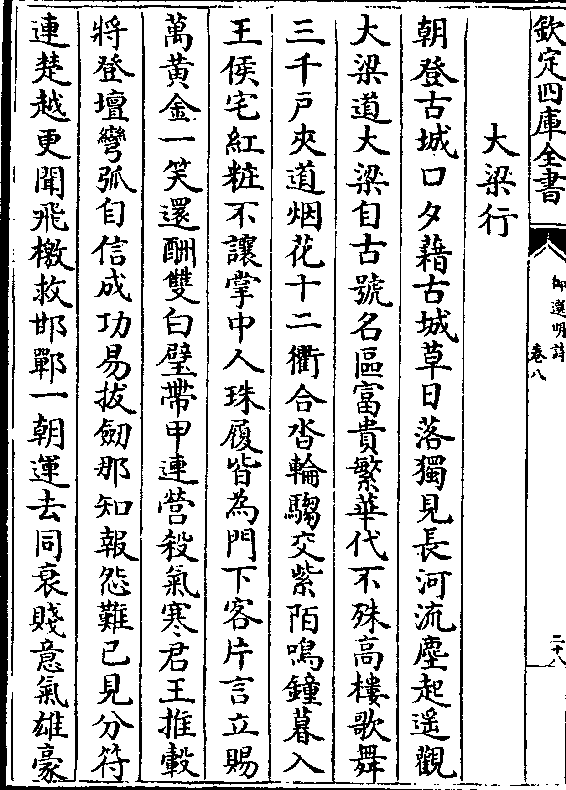 欽定四庫全書
御選明詩
卷八
二十八
大梁行
朝登古城口夕藉古城草日落獨見長河流塵起遥觀
大梁道大梁自古號名區富貴繁華代不殊高樓歌舞
三千戶夾道烟花十二衢合沓輪騶交紫陌鳴鐘暮入
王侯宅紅粧不讓掌中人珠履皆為門下客片言立賜
萬黄金一笑還酬雙白璧帶甲連營殺氣寒君王推轂
將登壇彎弧自信成功易拔劒那知報怨難已見分符
連楚越更聞飛檄救邯鄲一朝運去同衰賤意氣雄豪